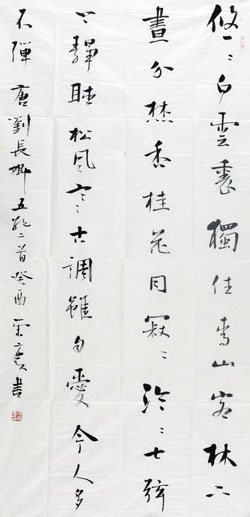 悠〻白雲裏獨住青山客林下
晝分焚香桂花同寂〻泠〻七弦
上靜聽松風寒古調雖自愛今人多
不彈 唐劉長卿五絕二首癸酉 書